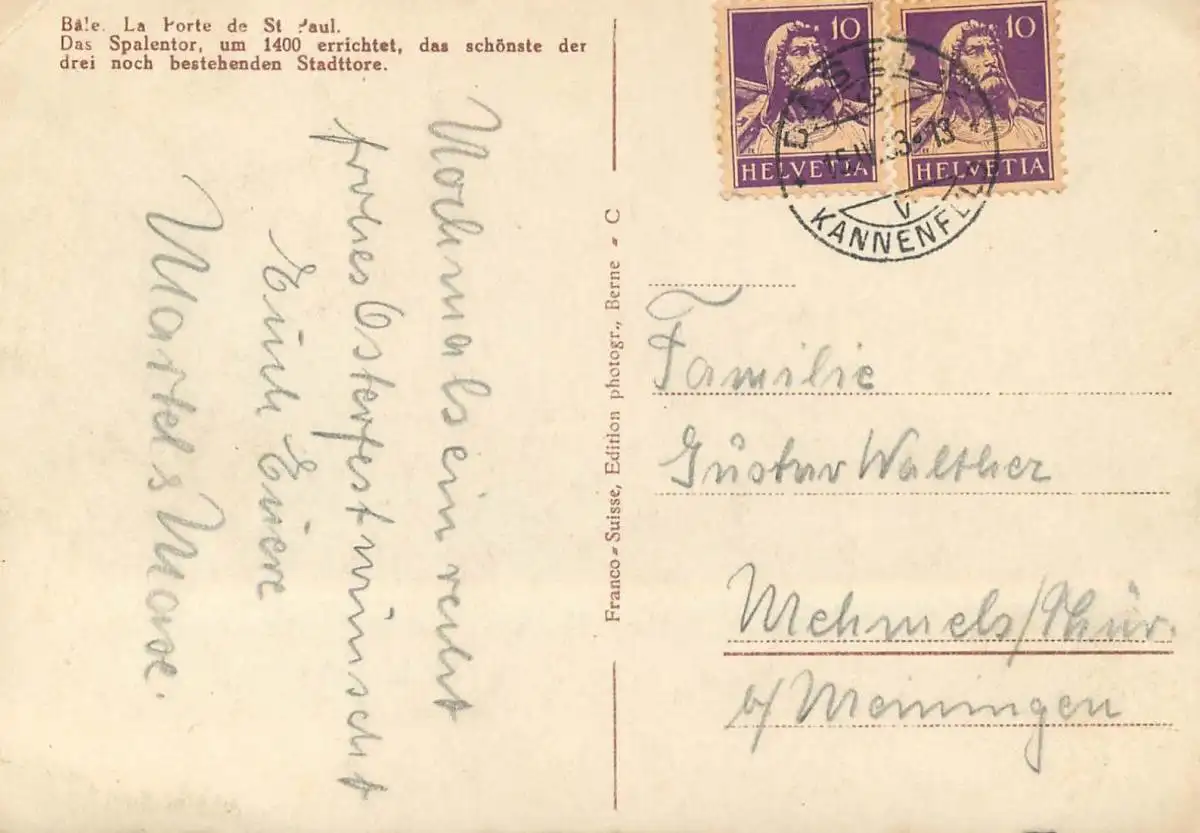 Bâle. La Porte de St Paul.
Das Spalentor, um 1400 errichtet, das schönste der
drei noch bestehenden Stadttore.
Nochmals ein recht
frohes Osterfest wünscht
Euch Eure
Martel & Mase.
Franco-Suisse, Edition photogr., Berne - C
10
HELVETIA
10
HELVETIA
BASEL
15.IV.33-13
V
KANNENFELD
Familie
Gustav Walther
Mehmels/Thür.
b/ Meiningen